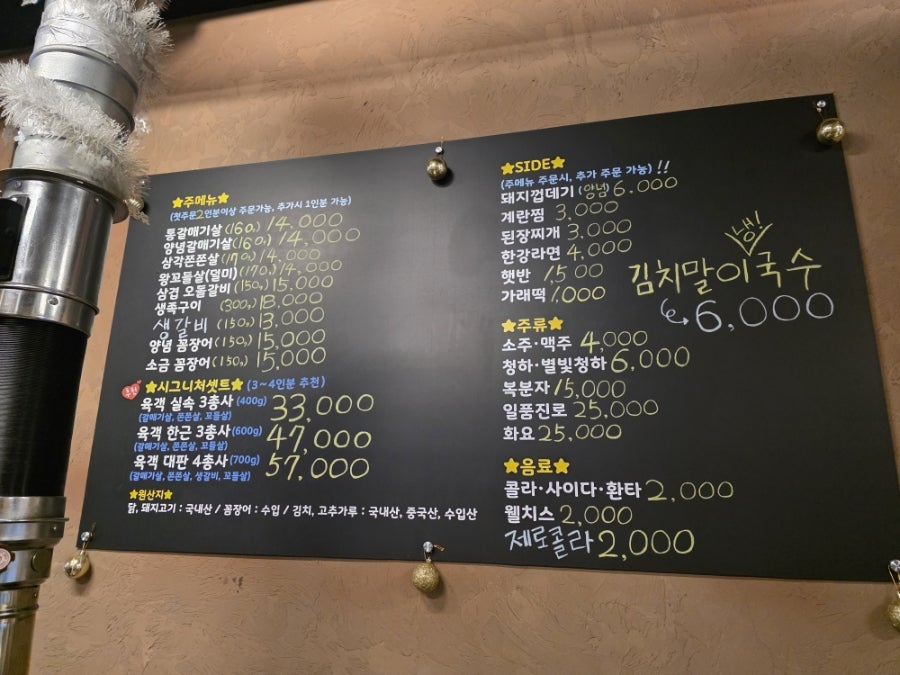 ★주메뉴★
(첫주문2인분이상 주문가능, 추가시 1인분 가능)
통갈매기살(160g) 14,000
양념갈매기살(160g) 14,000
삼각쫀쫀살(170g) 14,000
왕꼬들살(덜미)(170g) 14,000
삼겹 오돌갈비(150g) 15,000
생족구이 (300g) 18,000
생갈비 (150g) 13,000
양념 꼼장어(150g) 15,000
소금 꼼장어(150g) 15,000
추천
★시그니처셋트★ (3~4인분 추천)
육객 실속 3총사 (400g) 33,000
(갈매기살, 쫀쫀살, 꼬들살)
육객 한근 3총사(600g) 47,000
(갈매기살, 쫀쫀살, 꼬들살)
육객 대판 4총사(700g) 57,000
(갈매기살, 쫀쫀살, 생갈비, 꼬들살)
★원산지★
닭, 돼지고기 : 국내산 / 꼼장어 : 수입 / 김치, 고추가루 : 국내산, 중국산, 수입산
★SIDE★
(주메뉴 주문시, 추가 주문 가능)!!
돼지껍데기(양념) 6.000
계란찜 3,000
된장찌개 3,000
한강라면 4,000
햇반 1,500
가래떡 1,000
냉!
김치말이국수
6,000
★주류★
소주·맥주 4,000
청하·별빛청하 6,000
복분자 15,000
일품진로 25,000
화요 25,000
★음료★
콜라·사이다·환타 2,000
웰치스 2,000
제로콜라 2,000